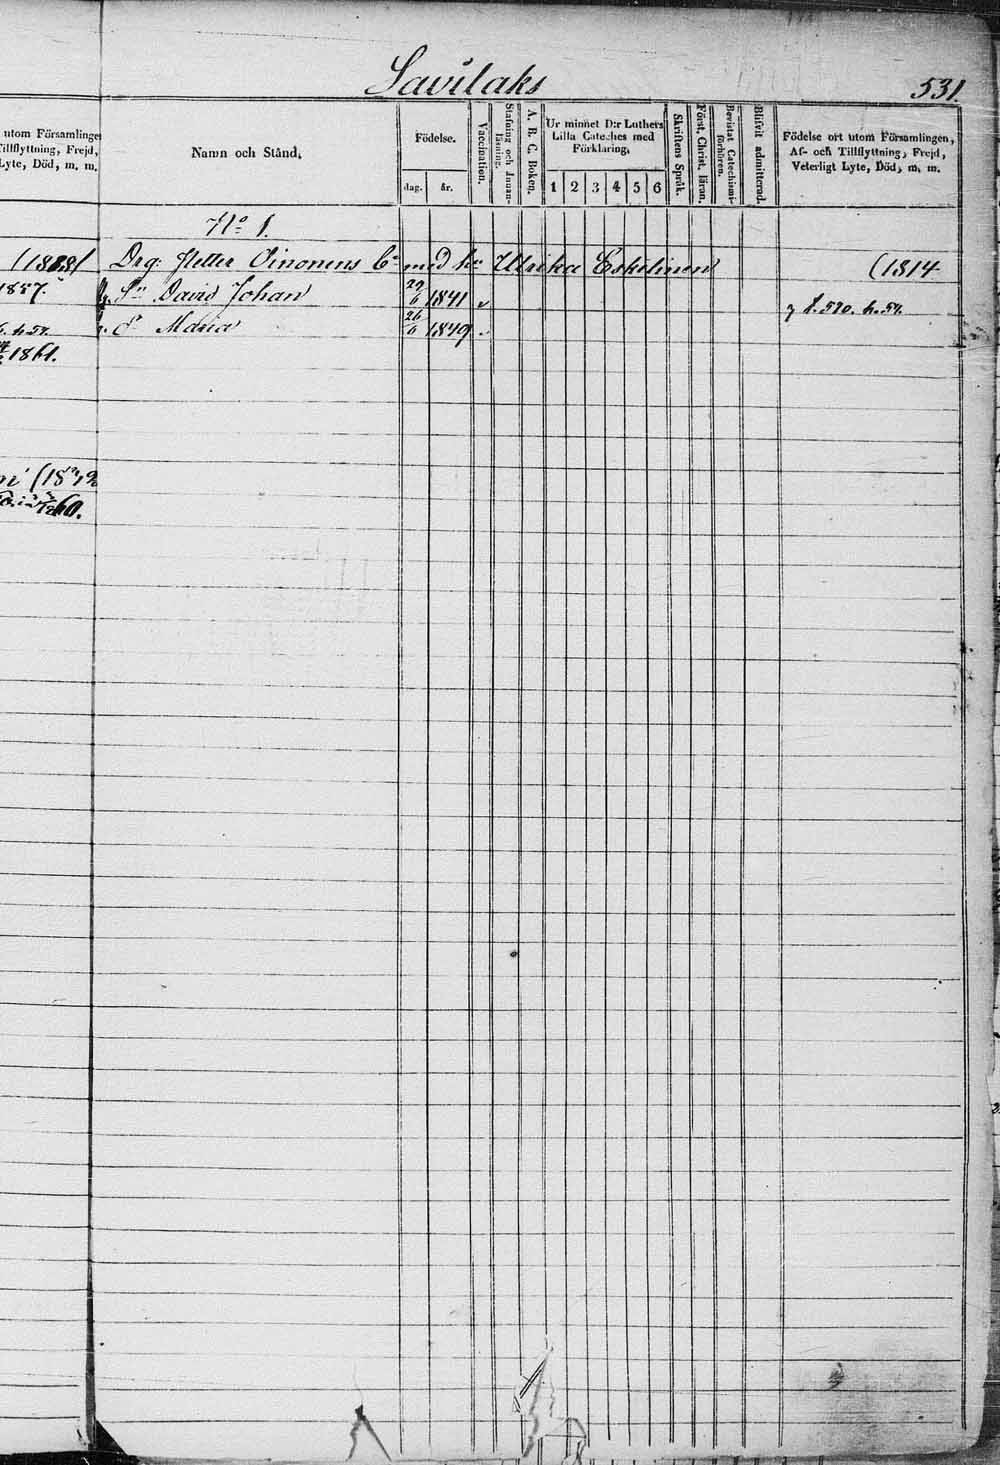 Savilaks
531.
utom Församlinge
Tillflyttning, Frejd,
Lyte, Död, m. m.
Namn och Stånd.
Födelse.
dag.
år.
Vaccination.
Stafning och Innan-
läsning.
A. B. C. Boken.
Ur minnet D:r Luthers
Lilla Cateches med
Förklaring.
1 2 3 4 5 6
Skriftens Språk.
Först. Christ. läran.
Bevistat Catechismi-
förhören.
Blifvit admitterad.
Födelse ort utom Församlingen,
Af- och Tillflyttning, Frejd,
Veterligt Lyte, Död, m. m.
No 1.
Drg: Petter Oinonens med hu Ulrika Eskelinen (1814
1857.
Sn David Johan 29/6 1841
f. 570. h. 54.
dr Maria 26/6 1849
1861.
60.